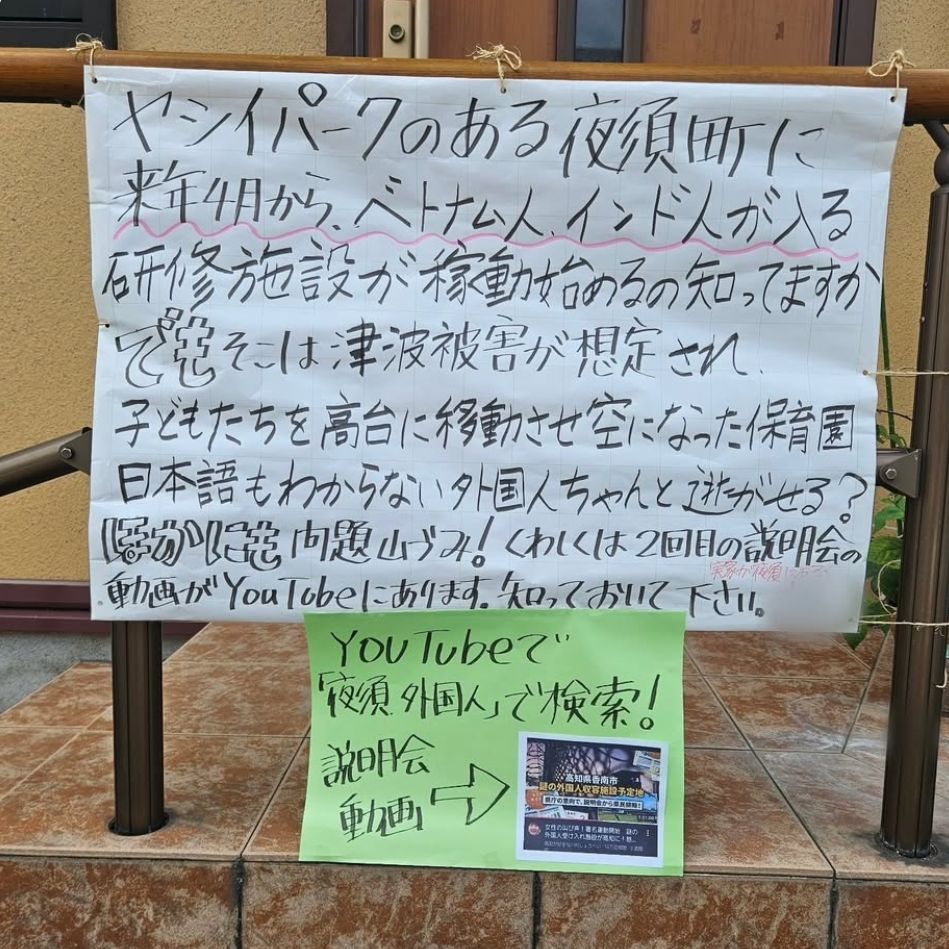 ヤシイパークのある夜須町に
来年4月から、ベトナム人、インド人が入る
研修施設が稼動始めるの知ってますか
でもそこは津波被害が想定され、
子どもたちを高台に移動させ空になった保育園
日本語もわからない外国人ちゃんと逃がせる?
ほかにも問題山づみ!くわしくは2回目の説明会の
実家が夜須
動画がYouTubeにあります。知っておいて下さい。
YouTubeで
「夜須 外国人」で検索!
説明会
動画
高知県香南市
謎の外国人収容施設予定地
県庁の意向で、説明会から県民排除!
女性の叫び声!署名運動開始 謎の
外国人受け入れ施設が高知に!怒...